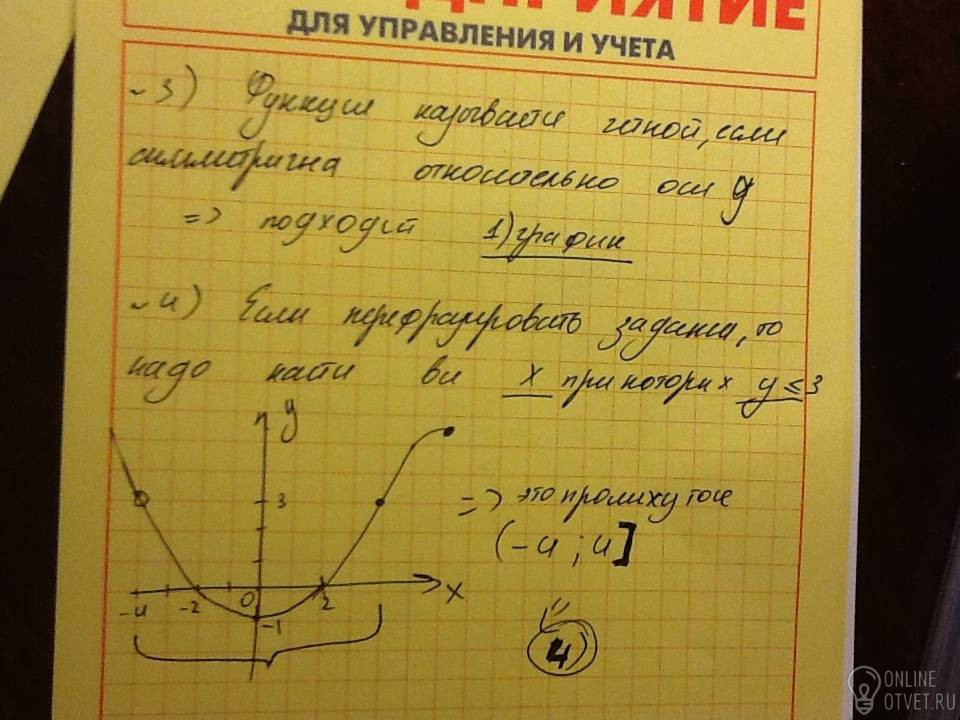 ПРИЯТИЕ
ДЛЯ УПРАВЛЕНИЯ И УЧЕТА
~3) Функция называется четной, если
симметрична относительно оси y
=> подходит 1) график
~4) Если перефразировать задание, то
надо найти все x при которых y ≤ 3
y
3
=> это промежуток
(-4; 4]
-4 -2 0 2 x
-1
4)
ONLINE
OTVET.RU